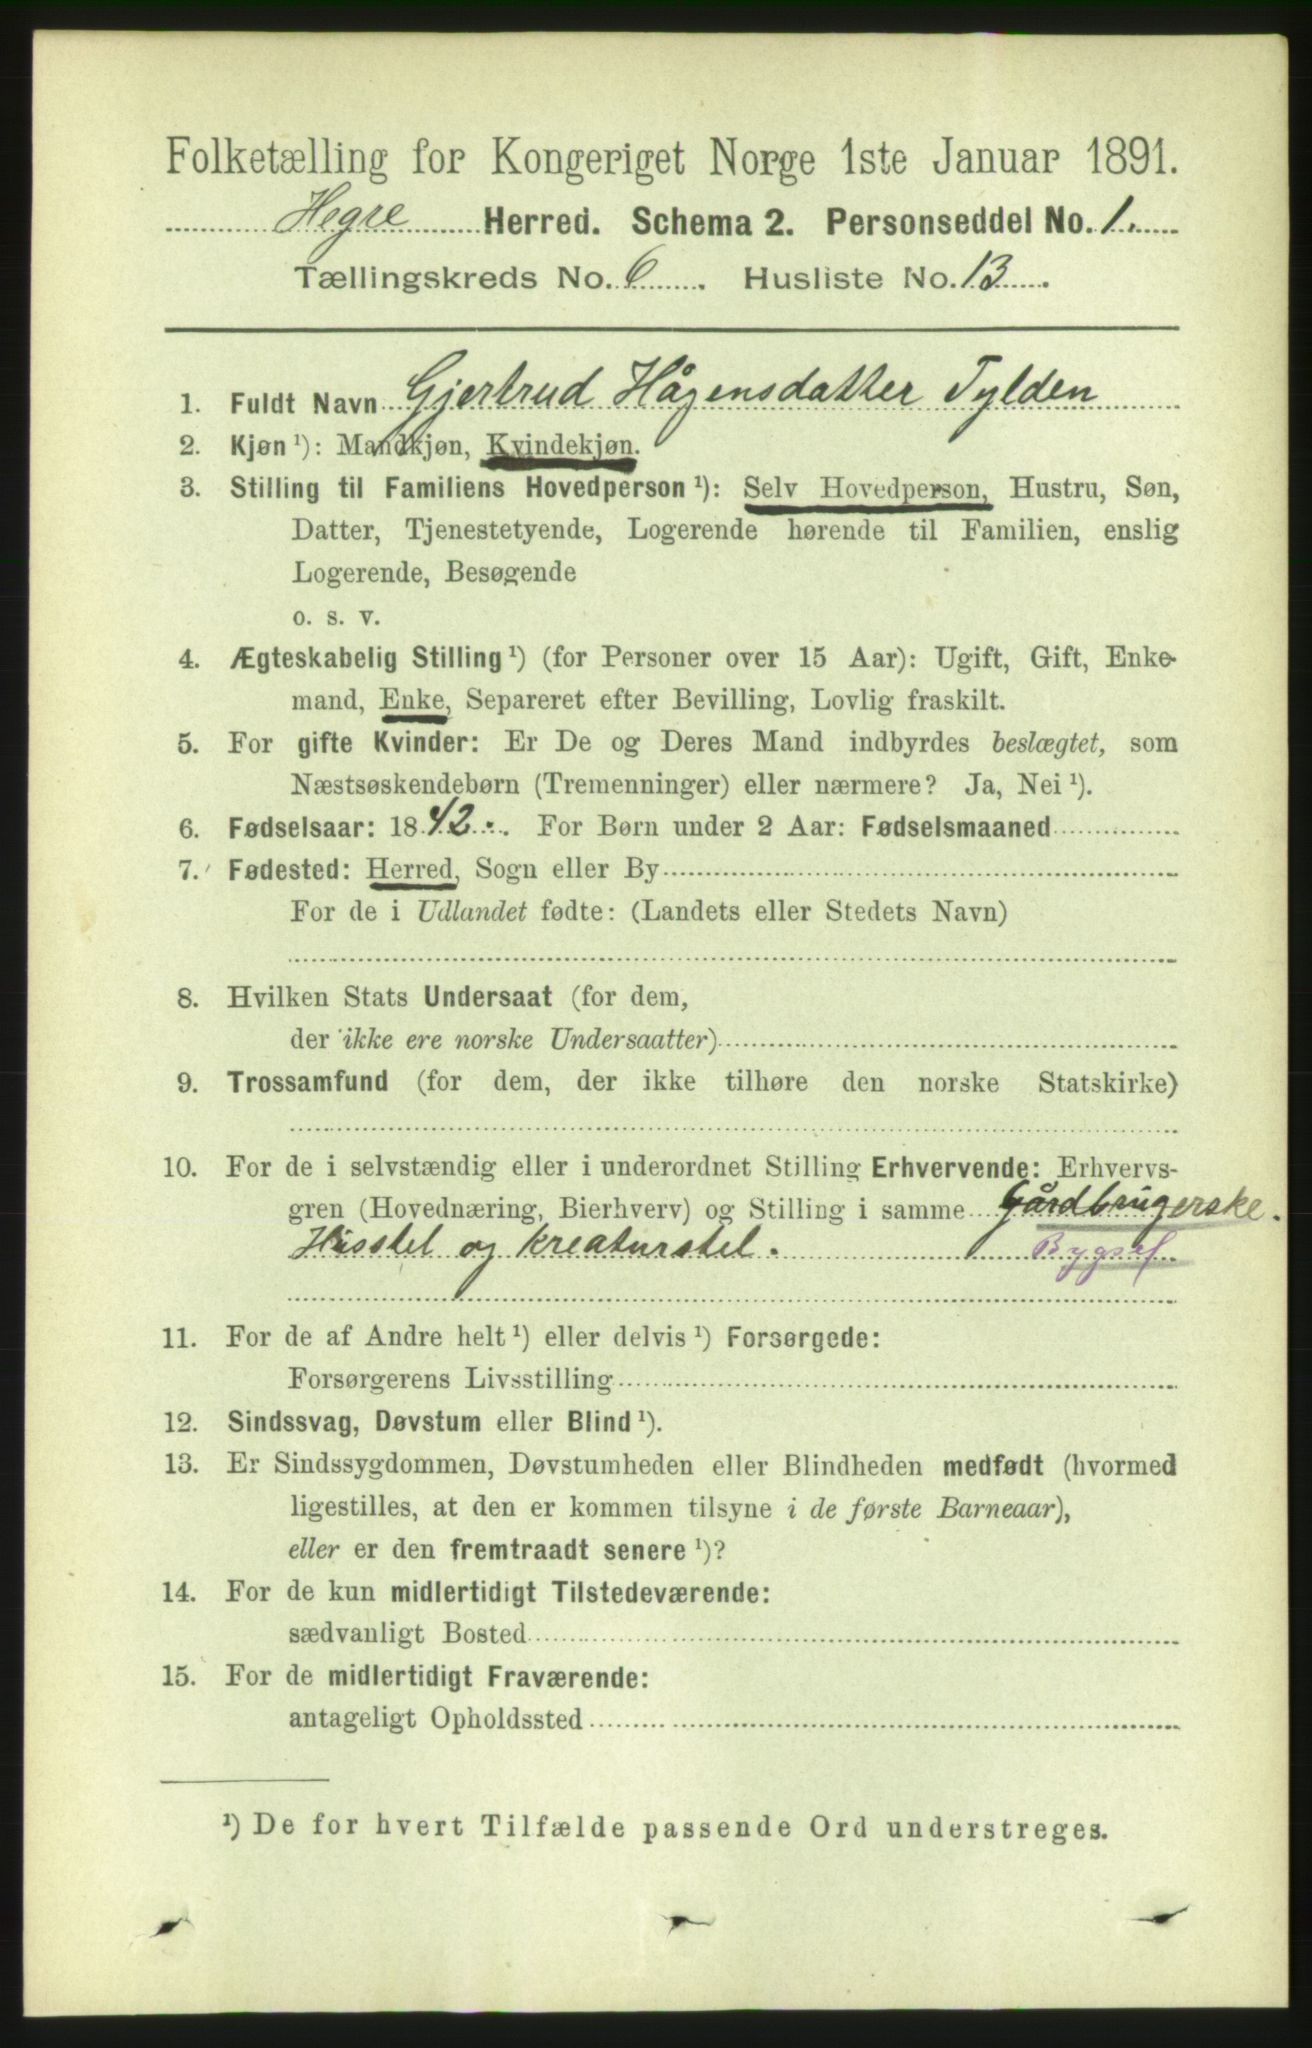 Folketælling for Kongeriget Norge 1ste Januar 1891.
Hegre Herred. Schema 2. Personseddel No. 1.
Tællingskreds No. 6. Husliste No. 13.
1. Fuldt Navn Gjertrud Hågensdatter Tylden
2. Kjøn ¹): Mandkjøn, Kvindekjøn.
3. Stilling til Familiens Hovedperson ¹): Selv Hovedperson, Hustru, Søn,
Datter, Tjenestetyende, Logerende hørende til Familien, enslig
Logerende, Besøgende
o. s. v.
4. Ægteskabelig Stilling ¹) (for Personer over 15 Aar): Ugift, Gift, Enke-
mand, Enke, Separeret efter Bevilling, Lovlig fraskilt.
5. For gifte Kvinder: Er De og Deres Mand indbyrdes beslægtet, som
Næstsøskendebørn (Tremenninger) eller nærmere? Ja, Nei ¹).
6. Fødselsaar: 1842. For Børn under 2 Aar: Fødselsmaaned
7. Fødested: Herred, Sogn eller By
For de i Udlandet fødte: (Landets eller Stedets Navn)
8. Hvilken Stats Undersaat (for dem,
der ikke ere norske Undersaatter)
9. Trossamfund (for dem, der ikke tilhøre den norske Statskirke)
10. For de i selvstændig eller i underordnet Stilling Erhvervende: Erhvervs-
gren (Hovednæring, Bierhverv) og Stilling i samme Gårdbrugerske.
Husstel og kreaturstel. Bygsel
11. For de af Andre helt ¹) eller delvis ¹) Forsørgede:
Forsørgerens Livsstilling
12. Sindssvag, Døvstum eller Blind ¹).
13. Er Sindssygdommen, Døvstumheden eller Blindheden medfødt (hvormed
ligestilles, at den er kommen tilsyne i de første Barneaar),
eller er den fremtraadt senere ¹)?
14. For de kun midlertidigt Tilstedeværende:
sædvanligt Bosted
15. For de midlertidigt Fraværende:
antageligt Opholdssted
¹) De for hvert Tilfælde passende Ord understreges.